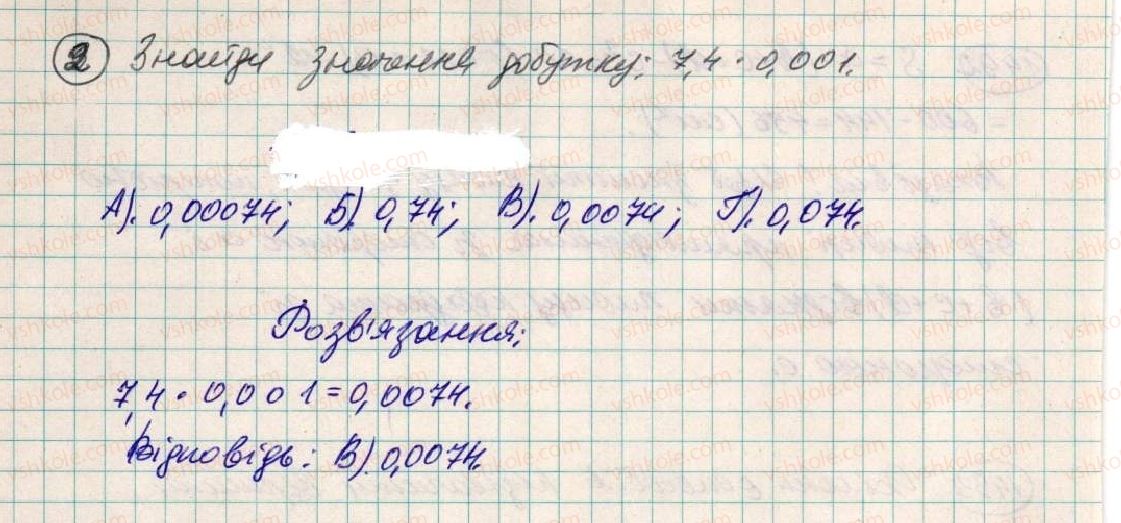 2 Знайди значення добутку: 7,4 · 0,001.
А). 0,00074; Б). 0,74; В). 0,0074; Г). 0,074.
Розв'язання:
7,4 · 0,001 = 0,0074.
Відповідь: В). 0,0074.